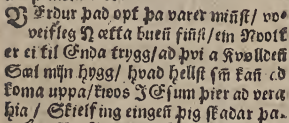 Verdur þad opt þa varer minst/ vo=
veifleg Nætta buen finst/ ein Noott
er ei til Enda trygg/ ad þvi a Kvølldeñ
Sæl mijn hygg/ hvad hellst sm kañ ad
koma uppa/ kioos JEsum þier ad vera
hia / Skielfing eingeñ þig skadar þa.